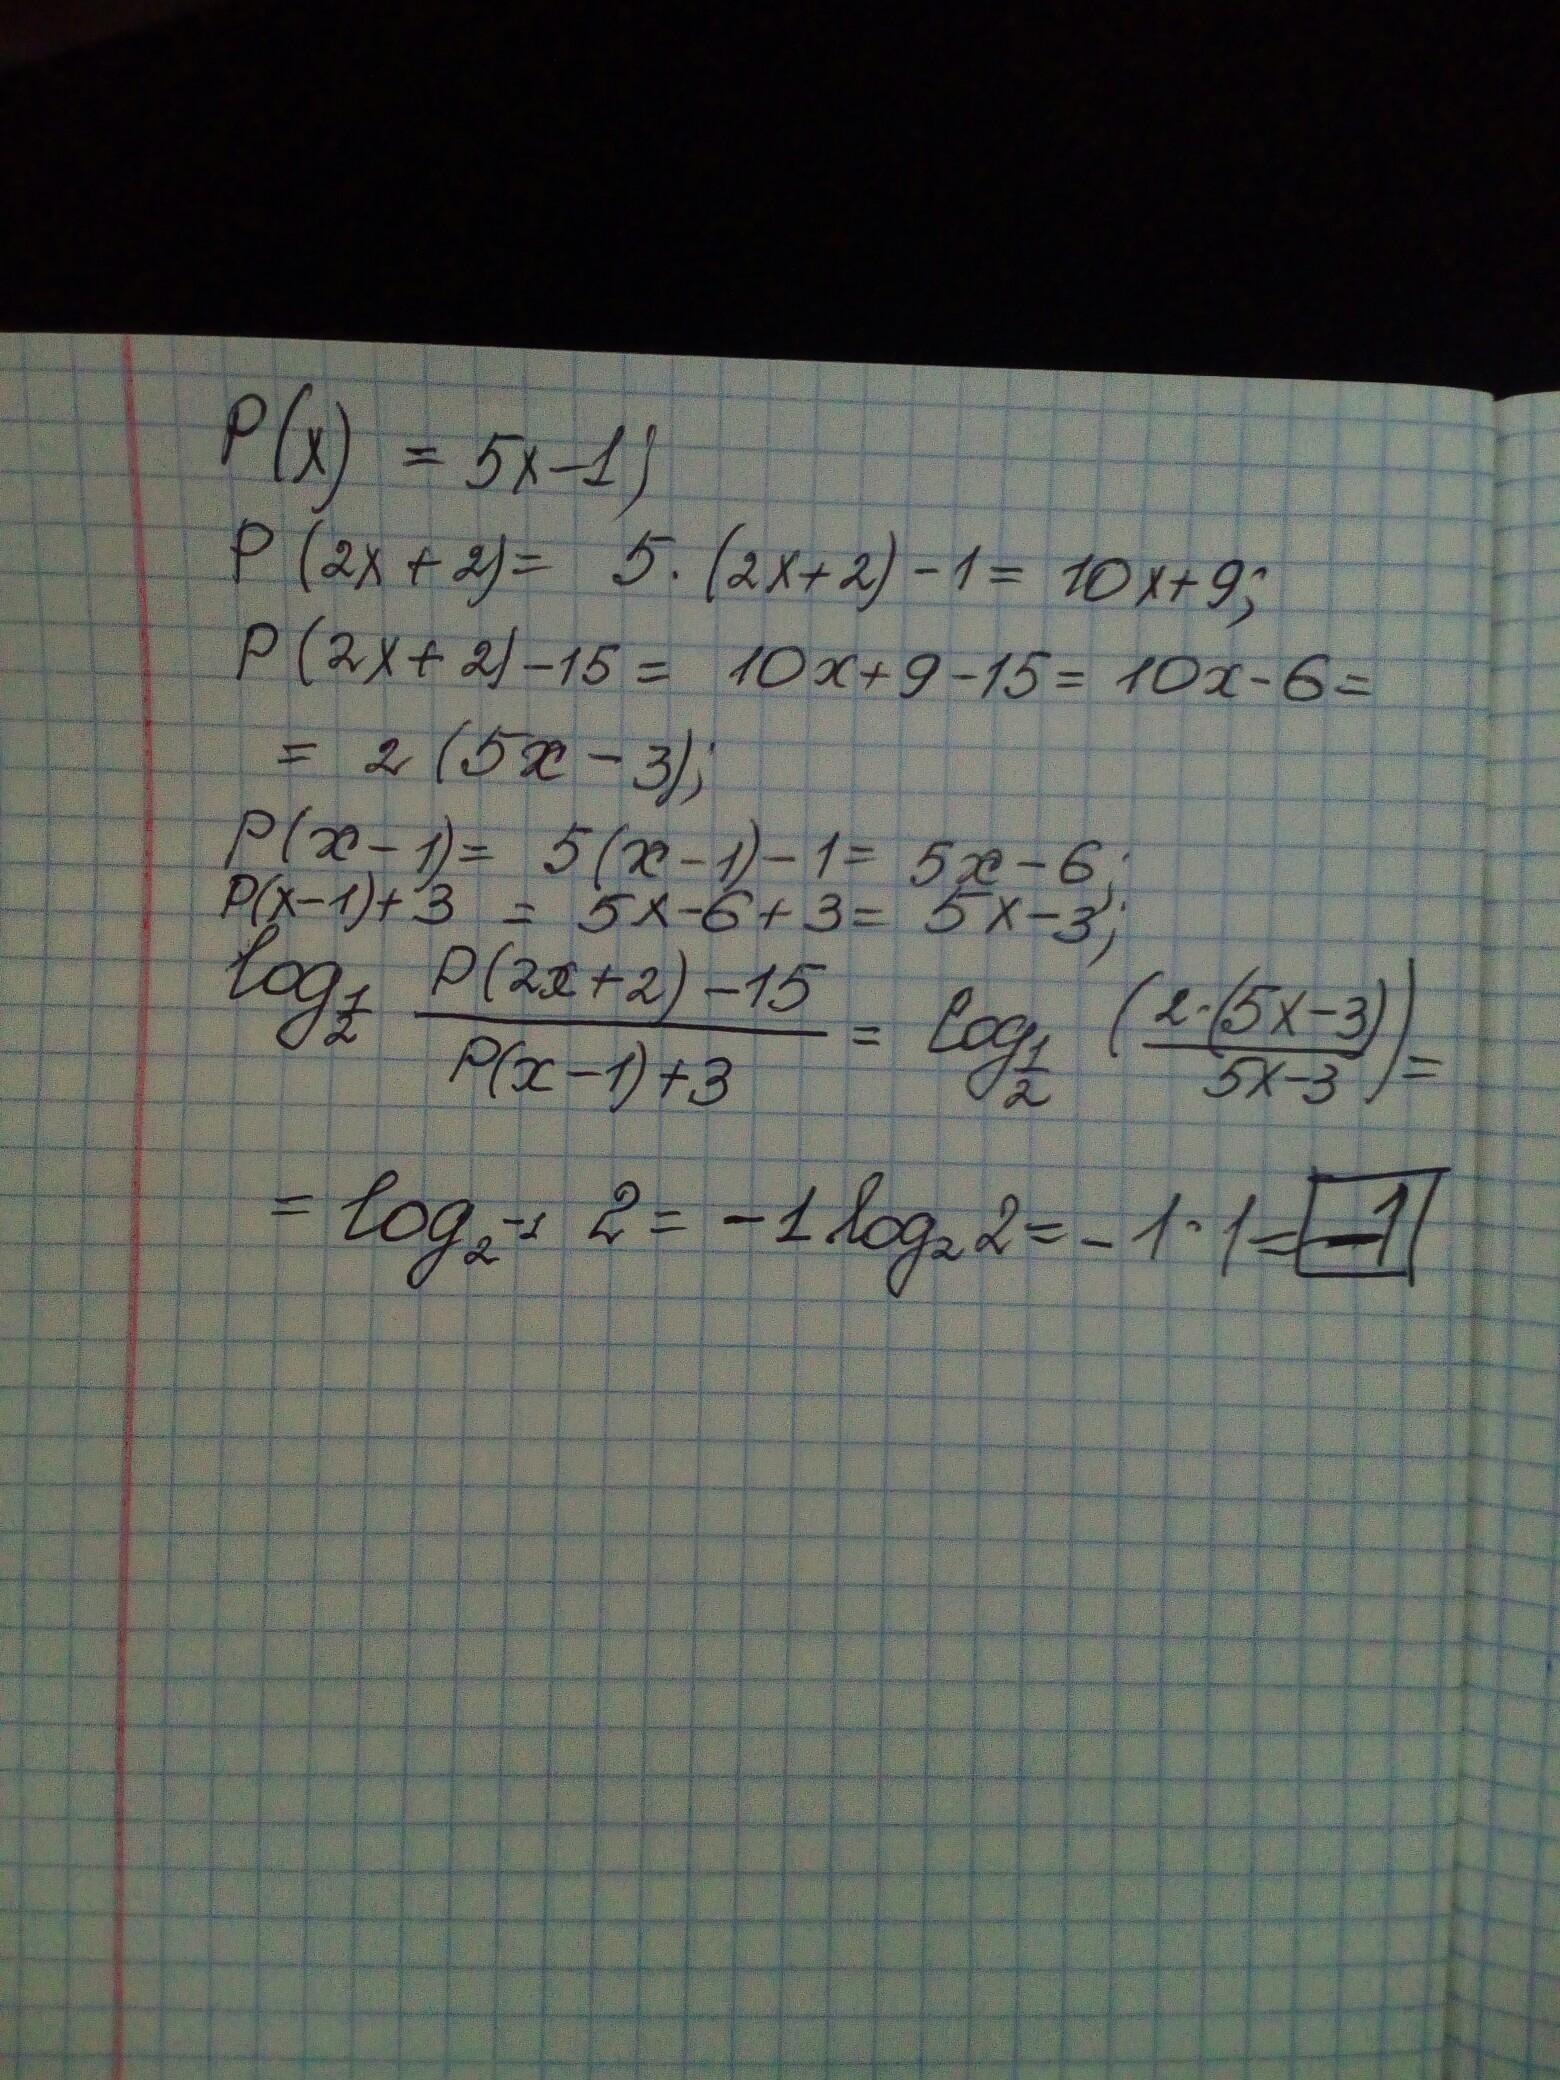 P(x) = 5x-1;
P(2x+2)= 5·(2x+2)-1= 10x+9;
P(2x+2)-15= 10x+9-15= 10x-6=
= 2(5x-3);
P(x-1)= 5(x-1)-1= 5x-6;
P(x-1)+3 = 5x-6+3= 5x-3;
log_{1/2} \frac{P(2x+2)-15}{P(x-1)+3} = log_{1/2} (\frac{2·(5x-3)}{5x-3})=
= log_{2^{-1}} 2= -1 log_2 2= -1·1= -1